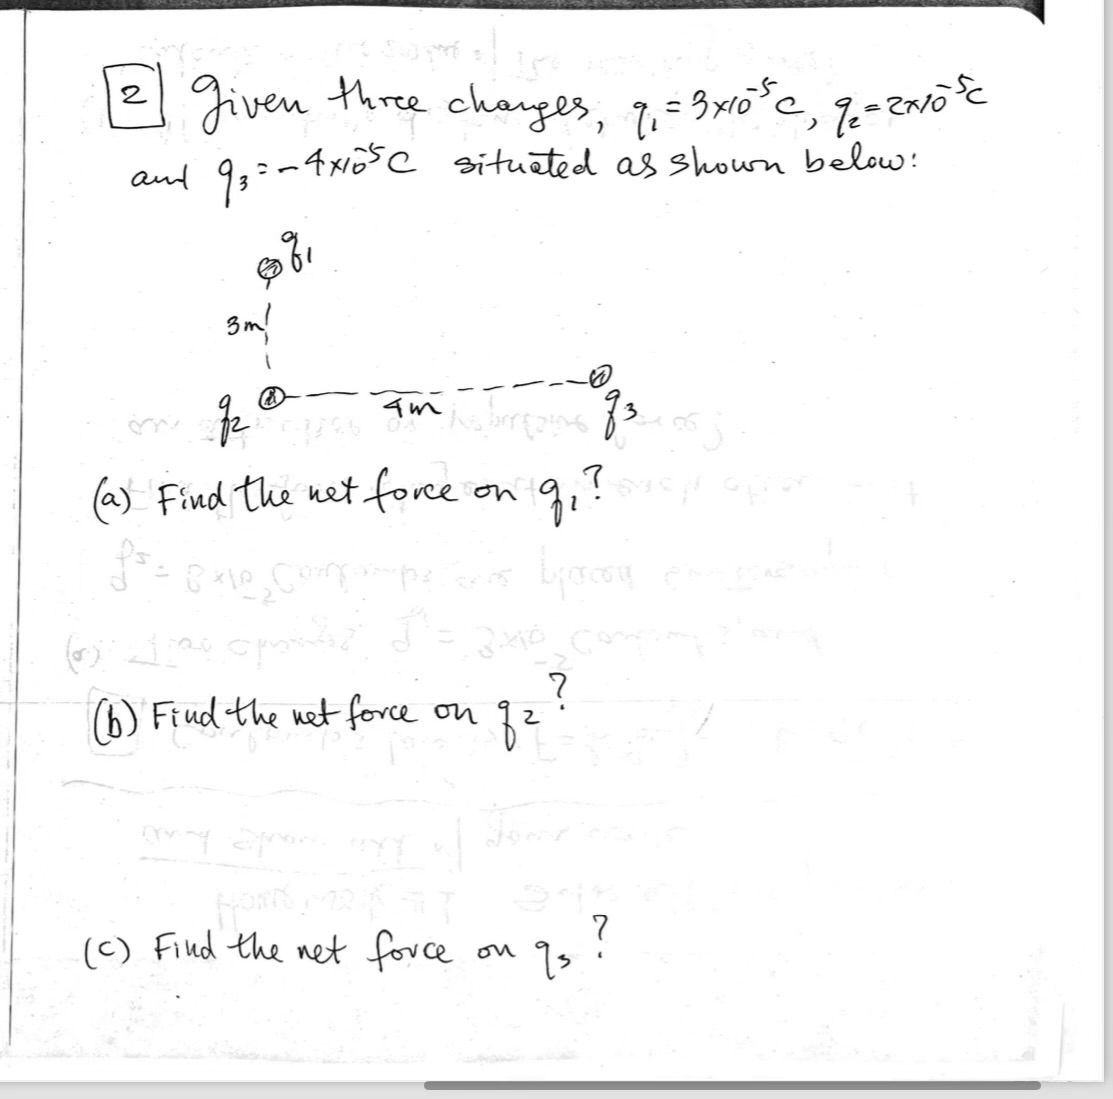 2 Given three charges, q₁ = 3×10⁻⁵C, q₂ = 2×10⁻⁵C
and q₃ = -4×10⁻⁵C situated as shown below:
q₁
3m
q₂ 4m q₃
(a) Find the net force on q₁?
(b) Find the net force on q₂?
(c) Find the net force on q₃?